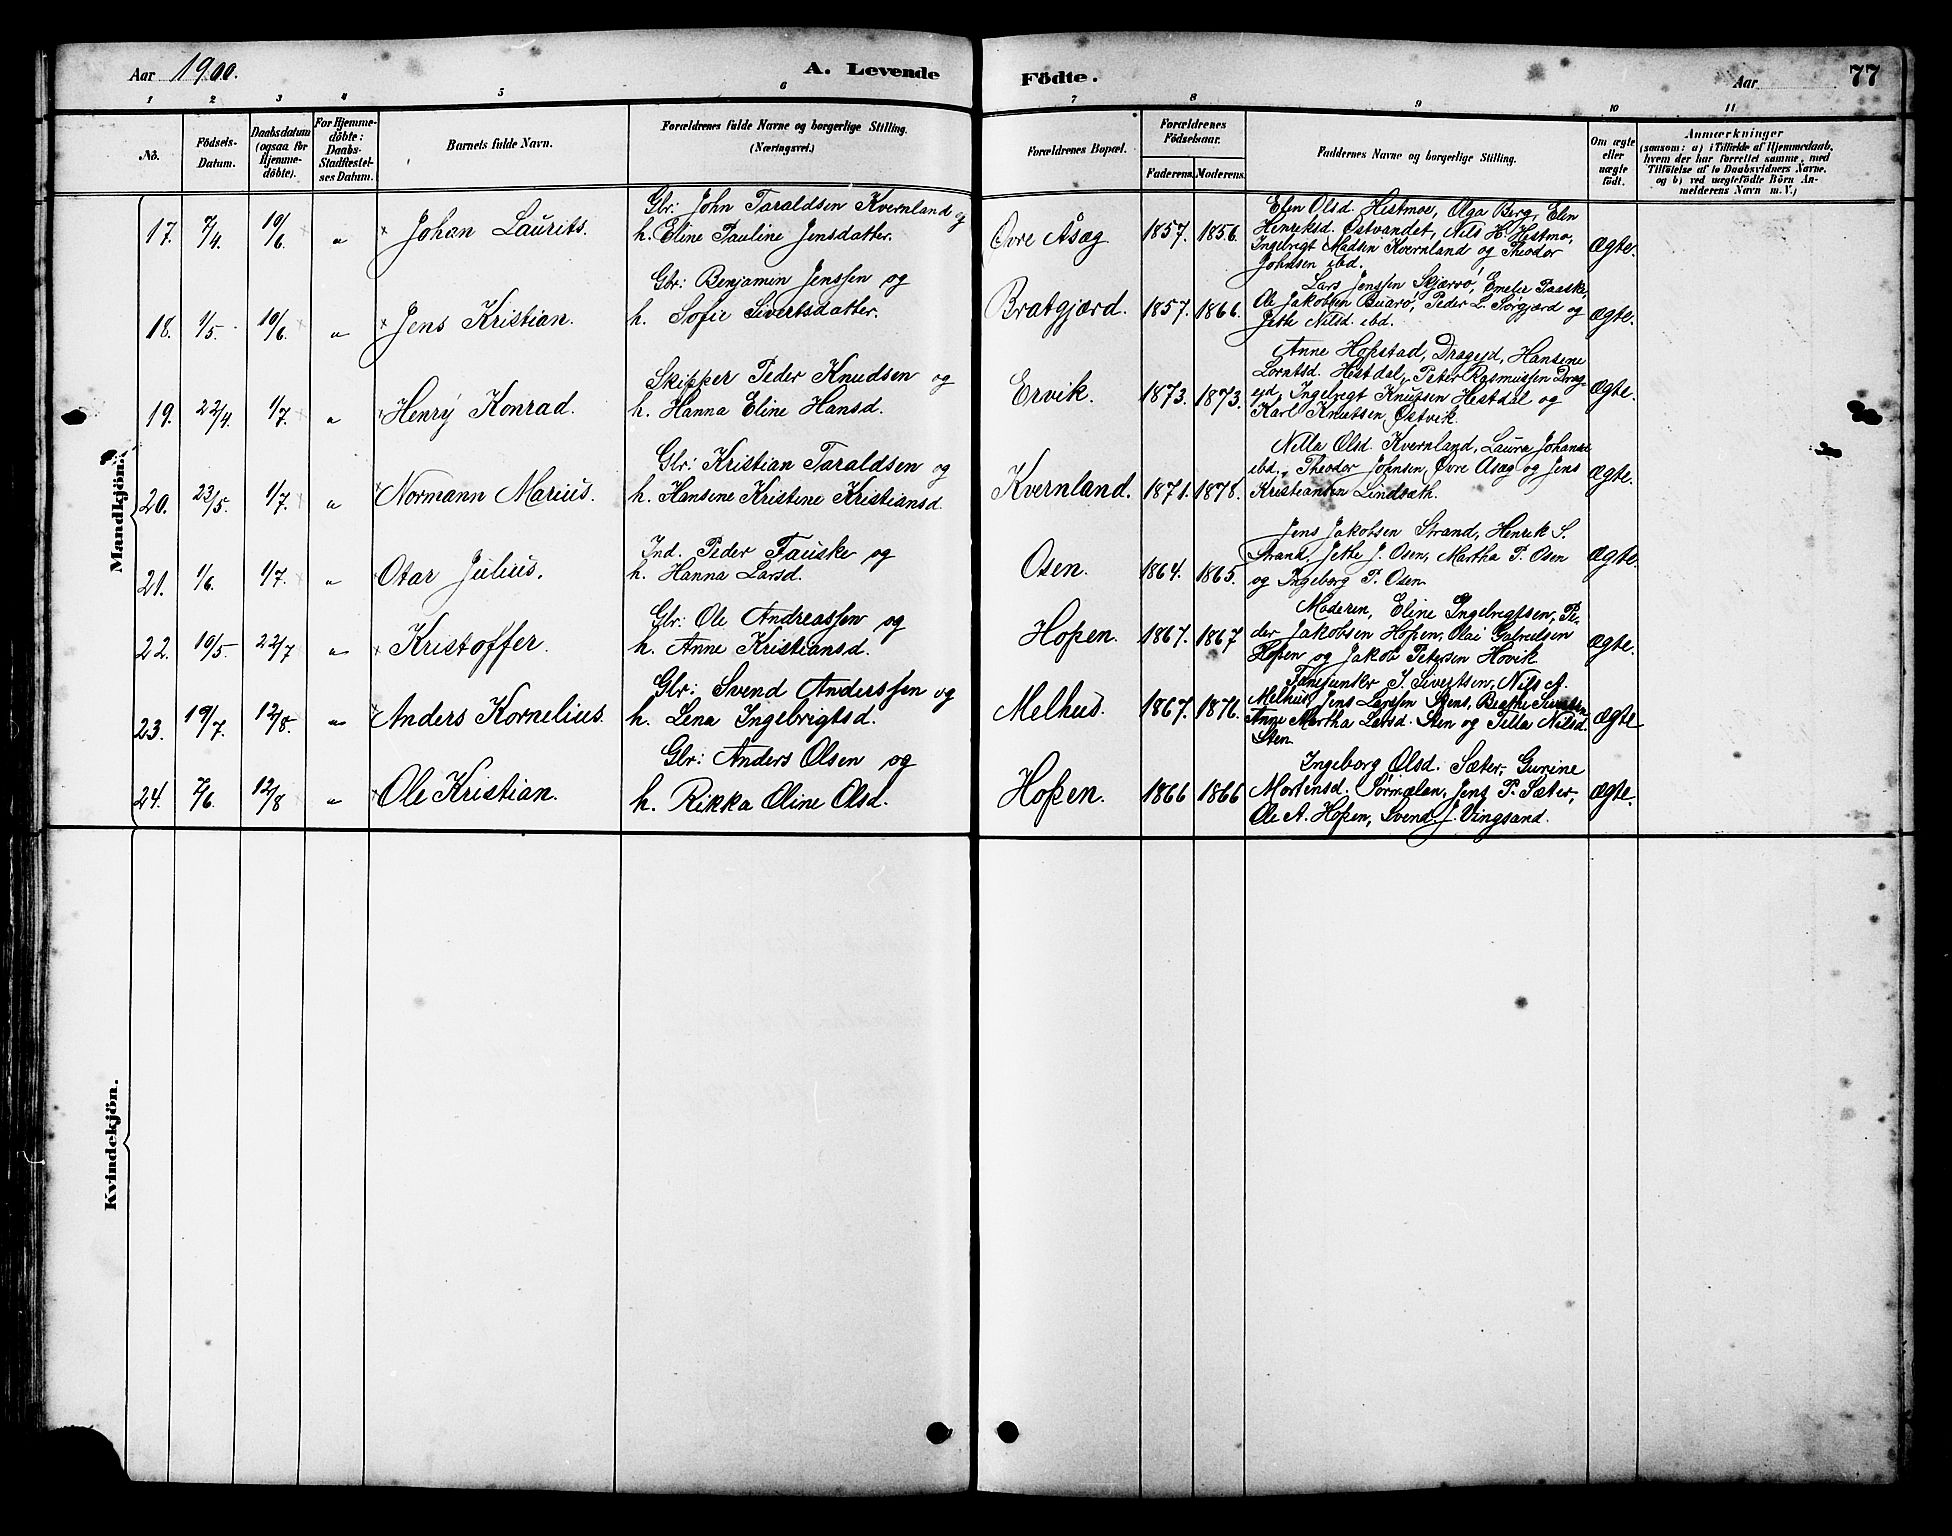 Aar 1900. A. Levende Födte. Aar 77
1 2 3 4 5 6 7 8 9 10 11
No. Födsels-Datum. Daabsdatum (ogsaa for Hjemmedöbte). For Hjemmedöbte: Daabs-Stadfæstelses Datum. Barnets fulde Navn. Forældrenes fulde Navne og borgerlige Stilling. (Næringsvei.) Forældrenes Bopæl. Forældrenes Födselsaar. Faderens. Moderens. Faddernes Navne og borgerlige Stilling. Om ægte eller uægte födt. Anmærkninger
(saasom: a) i Tilfælde af Hjemmedaab,
hvem der har forrettet samme, med
Tilföielse af to Daabsvidners Navne,
og b) ved uægtefödte Börn Anmelderens Navn m. V.)
Mandkjön.
17. 7/4. 10/6. " Johan Laurits. Gbr: John Taraldsen Kvernland og
h. Eline Pauline Jensdatter. Övre Åsæg 1857. 1856. Elen Olsd. Hestmoe, Olga Berg, Elen
Henriksd. Østvandet, Nils H. Hestmo,
Ingebrigt Madsen Kvernland og Theodor
Johnsen ibd. Ægte.
18. 1/5. 10/6. " Jens Kristian. Gbr: Benjamin Jenssen og
h. Sofie Sivertsdatter. Bratgjærd. 1857. 1866. Lars Jenssen Skjærvö, Emelie Taaske,
Ole Jakobsen Buarö, Peder L. Sörgjærd og
Jethe Nilsd. ibd. Ægte.
19. 22/4. 1/7. " Henry Konrad. Skipper Peder Knudsen og
h. Hanna Eline Hansd. Ervik. 1873. 1873. Anne Hopstad, Drageid, Hansine
Lorntsd. Hestdal, Peter Rasmussen Drageid, Ingebrigt Knutsen Hestdal og
Karl Knutsen Østvik. Ægte.
20. 23/5. 1/7. " Normann Marius. Gbr: Kristian Taraldsen og
h. Hansine Kristine Kristiansd. Kvernland. 1871. 1878. Nilla Olsd. Kvernland, Laura Johansd.
ibd., Theodor Johnsen Övre Åsæg og Jens
Kristiansen Lindsæth. Ægte.
21. 1/6. 1/7. " Otar Julius. Ind. Peder Fauske og
h. Hanna Larsd. Osen. 1864. 1865. Jens Jakobsen Strand, Henrik S.
Strand, Jethe J. Osen, Martha P. Osen
og Ingeborg P. Osen. Ægte.
22. 10/5. 22/7 " Kristoffer. Gbr: Ole Andreassen og
h. Anne Kristiansd. Hopen. 1867. 1867 Moderen, Eline Ingebrigtsen, Peder Jakobsen Hopen, Olai Gabrielsen
Hopen og Jakob Petersen Hovik Ægte.
23. 19/7. 12/8. " Anders Kornelius. Gbr: Svend Anderssen og
h. Lena Ingebrigtsd. Melhus. 1867. 1876. J. Sivertsen, Nils A.
Melhus, Jens Larssen Stens, Beathe
Anne Martha Larsd. Sten og Pella Nilsd.
Sten. Ægte
24. 7/6. 12/8 " Ole Kristian. Gbr: Anders Olsen og
h. Rikka Oline Olsd. Hopen. 1866 1866 Ingeborg Olsd. Sæter, Gurine
Mortensd. Sörmælen, Jens P. Sæter,
Ole A. Hopen, Svend J. Vingsand. Ægte.
Kvindekjön.